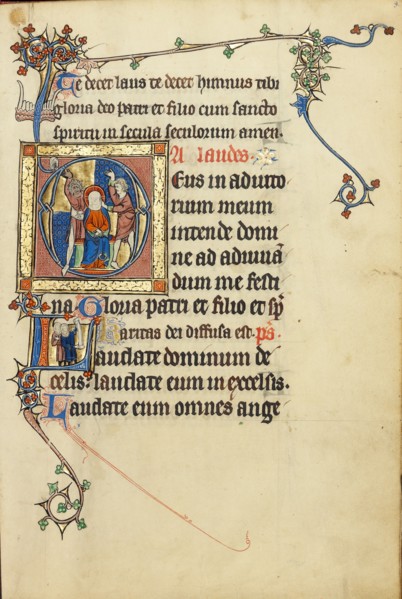 Te decet laus te decet himnus tibi
gloria deo patri et filio cum sancto
spiritu in secula seculorum amen.
A laudes
Deus in adiuto
rium meum
intende domi
ne ad adiuuā
dum me festi
na Gloria patri et filio et sp̄
Karitas dei diffusa est. ps̄.
Laudate dominum de
celis: laudate eum in excelsis.
Laudate eum omnes ange